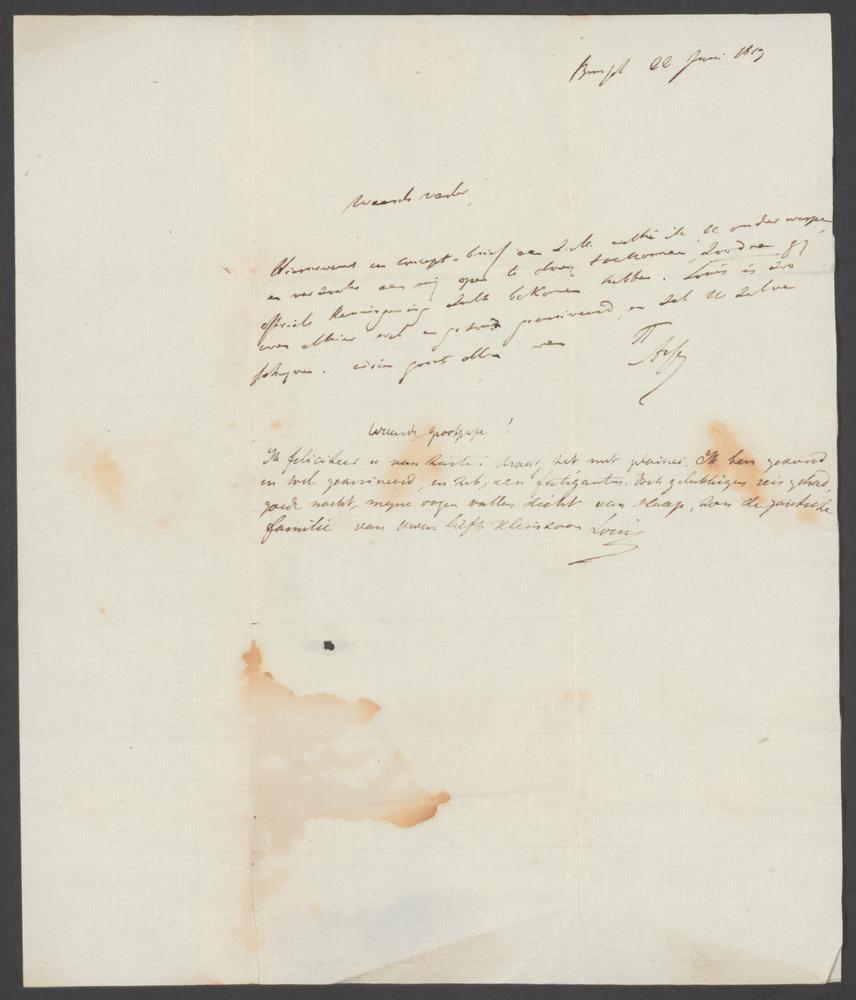 22 Juni
Waarde vader,
een concept-brief aan Z.M. welke ik U onderwerpe,
en verzoeke aan mij open te doen toekomen, zoodra gij
officiele kennisgeving zult bekomen hebben. Louis is zoo
even alhier wel en gezond gearriveerd, en zal U zelve
schryven. groet allen
Waarde Grootpapa!
Ik feliciteer u van harte. draag het met plaisier. Ik ben gezond
en wel gearriveerd, en heb, een fatigante, doch gelukkige reis gehad,
goede nacht, myne oogen vallen dicht van slaap, aan de gantsche
familie van uwen liefh kleinzoon Louis